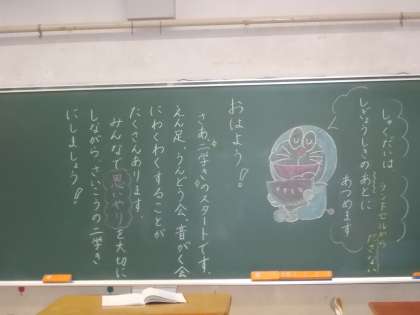 しゅくだいは、
ランドセルから
ださない
しぎょうしきのあとに
あつめます
おはよう！！
さあ、二学きのスタートです。
えん足、うんどう会、音がく会
にわくわくすることが
たくさんあります。
みんなで思いやりを大切に
しながら、さいこうの二学き
にしましょう！！